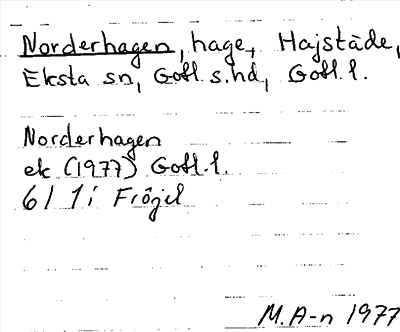 Norderhagen, hage, Hajstäde,
Eksta sn, Gotl. s. hd, Gotl. l.
Norderhagen
ek (1977) Gotl. l.
6I 1i Fröjel
M. A-n 1977